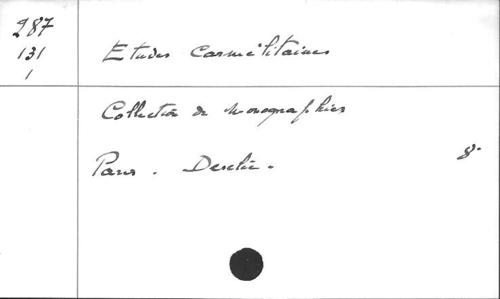 287
131
1
Etudes Carmélitaines
Collection de monographies
Paris. Desclée.
8°